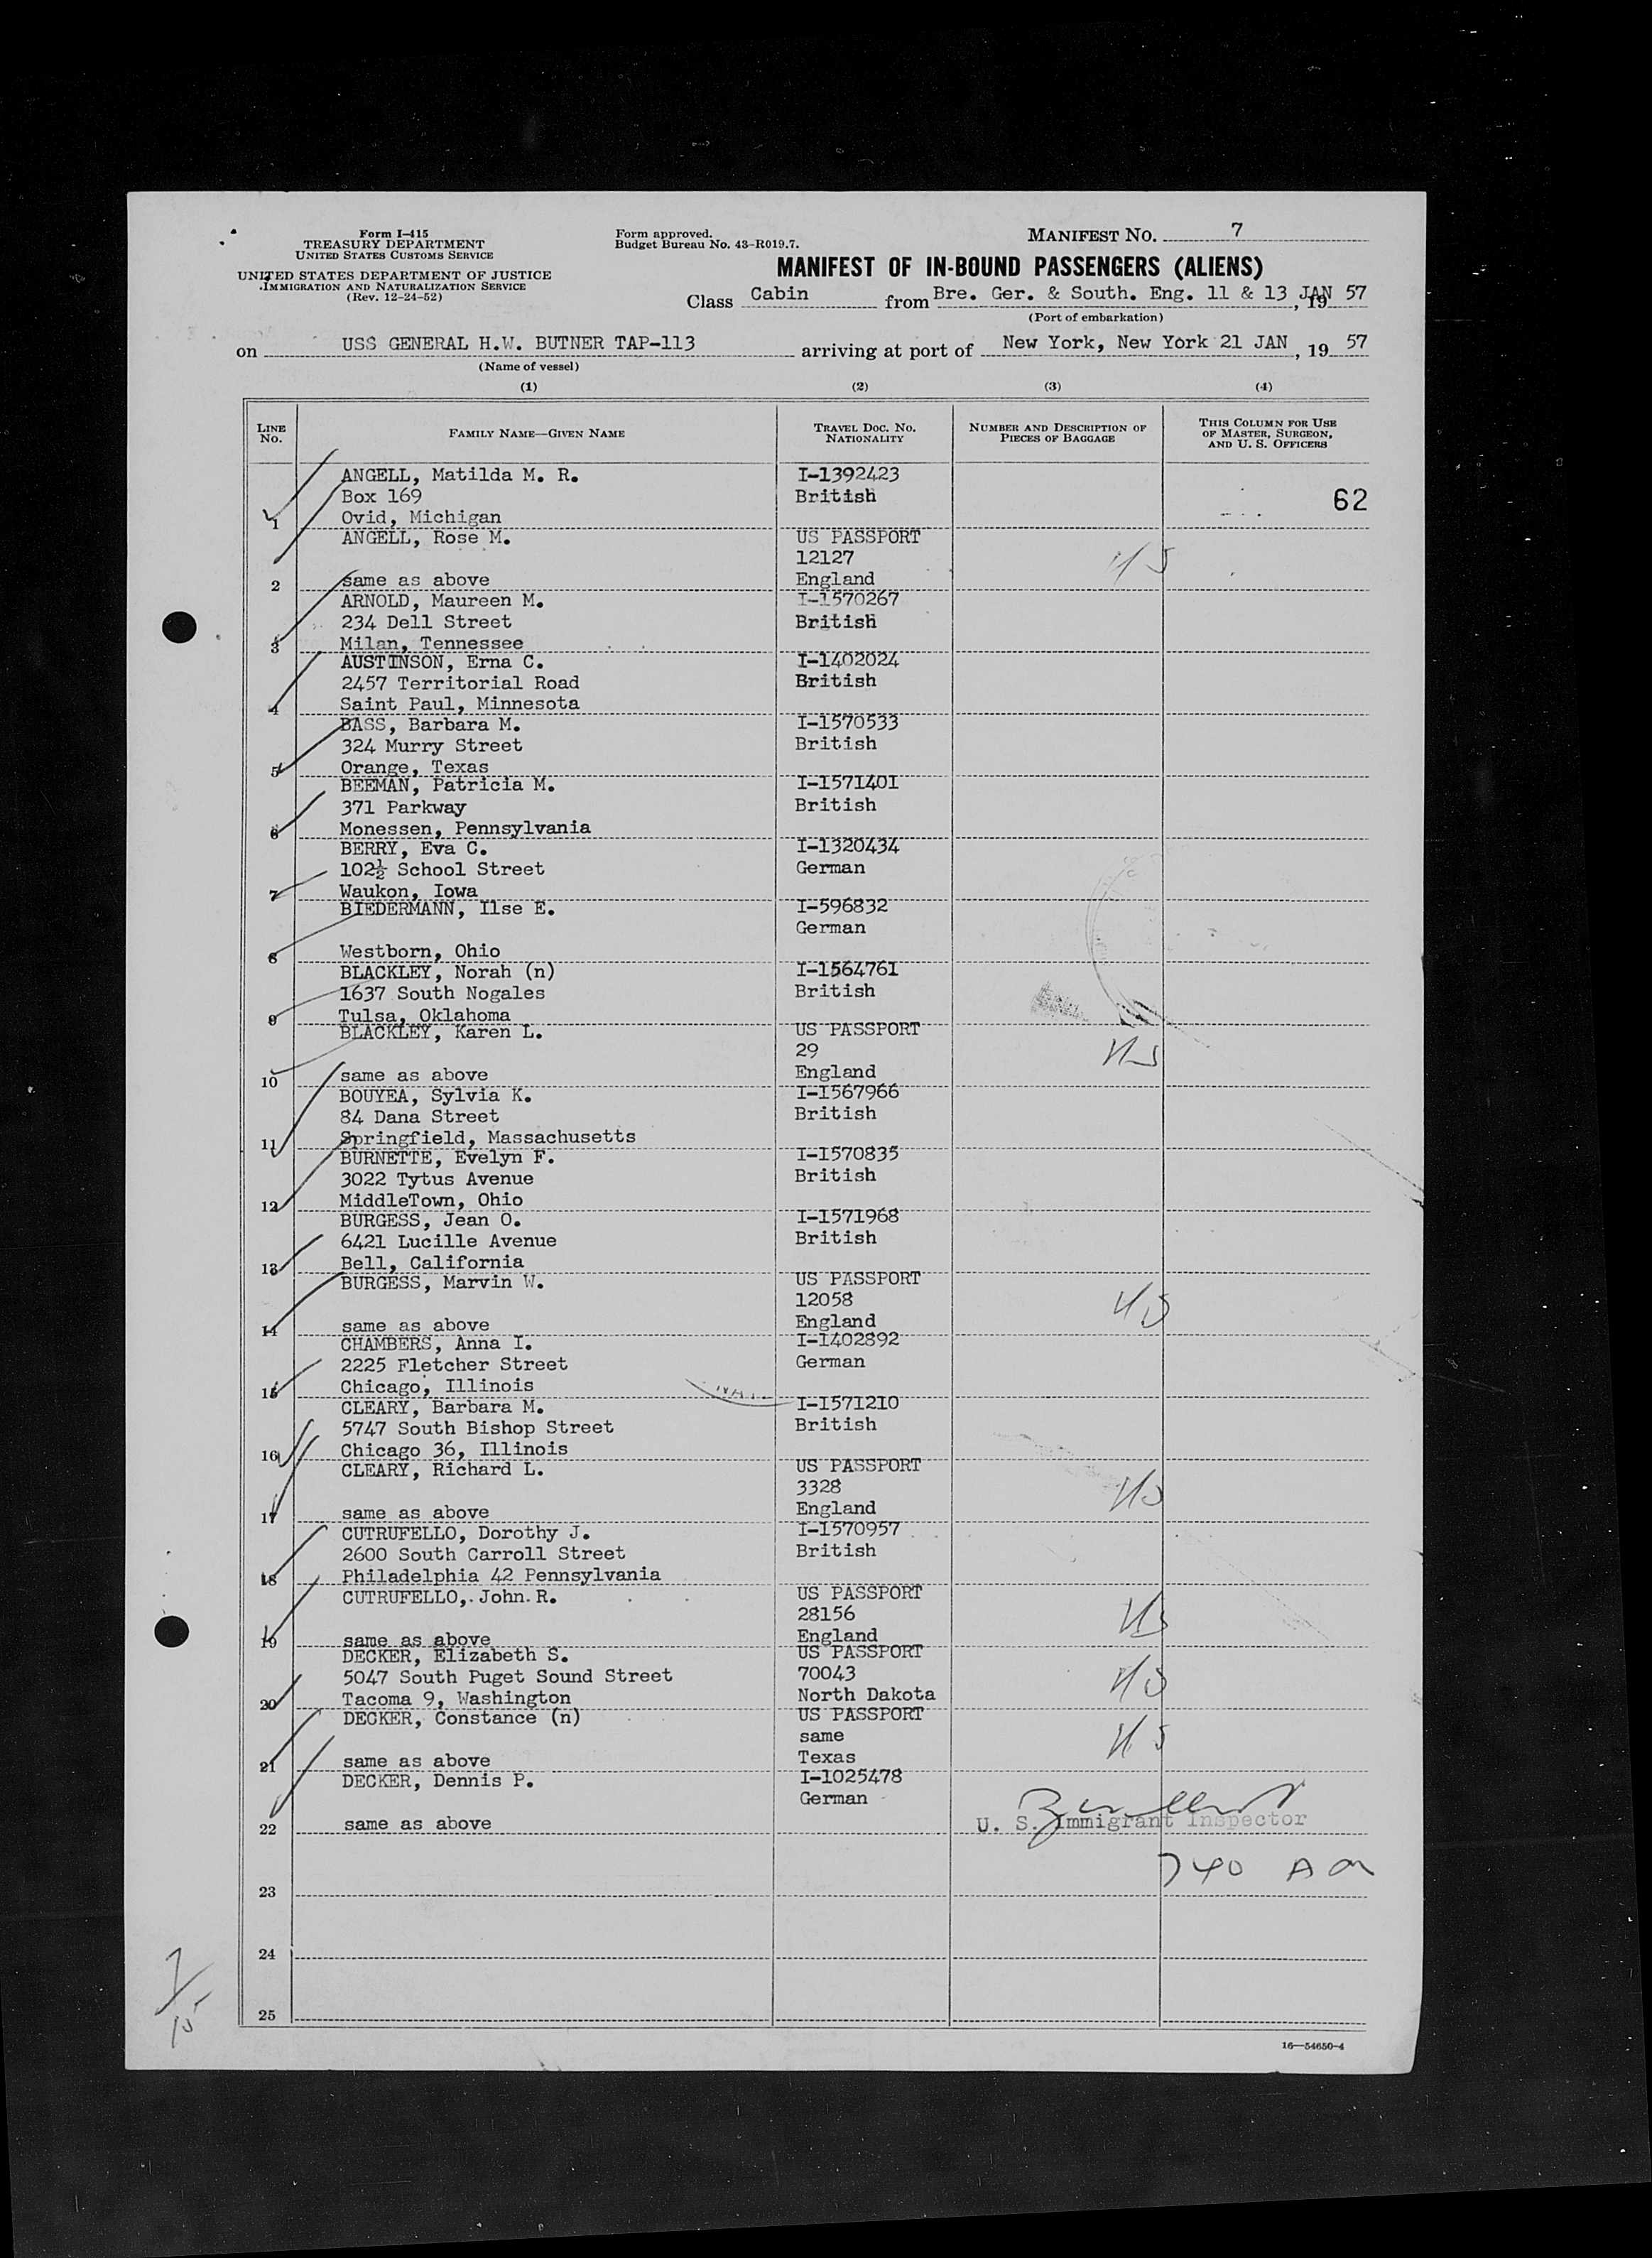 Form I-415
TREASURY DEPARTMENT
UNITED STATES CUSTOMS SERVICE
UNITED STATES DEPARTMENT OF JUSTICE
IMMIGRATION AND NATURALIZATION SERVICE
(Rev. 12-24-52)
Form approved.
Budget Bureau No. 43-R019.7.
MANIFEST NO. 7
MANIFEST OF IN-BOUND PASSENGERS (ALIENS)
Class Cabin from Bre. Ger. & South. Eng. 11 & 13 JAN, 19 57
(Port of embarkation)
on USS GENERAL H.W. BUTNER TAP-113 arriving at port of New York, New York 21 JAN, 19 57
(Name of vessel)
(1) (2) (3) (4)
LINE No. FAMILY NAME—GIVEN NAME TRAVEL DOC. NO. NATIONALITY NUMBER AND DESCRIPTION OF PIECES OF BAGGAGE THIS COLUMN FOR USE OF MASTER, SURGEON, AND U. S. OFFICERS
ANGELL, Matilda M. R. I-1392423
Box 169 British 62
1 Ovid, Michigan
ANGELL, Rose M. US PASSPORT
12127 US
2 same as above England
ARNOLD, Maureen M. I-1570267
234 Dell Street British
3 Milan, Tennessee
AUSTINSON, Erna C. I-1402024
2457 Territorial Road British
4 Saint Paul, Minnesota
BASS, Barbara M. I-1570533
324 Murry Street British
5 Orange, Texas
BEEMAN, Patricia M. I-1571401
371 Parkway British
6 Monessen, Pennsylvania
BERRY, Eva C. I-1320434
102½ School Street German
7 Waukon, Iowa
BIEDERMANN, Ilse E. I-596832
German
8 Westborn, Ohio
BLACKLEY, Norah (n) I-1564761
1637 South Nogales British
9 Tulsa, Oklahoma
BLACKLEY, Karen L. US PASSPORT
29 US
10 same as above England
BOUYEA, Sylvia K. I-1567966
84 Dana Street British
11 Springfield, Massachusetts
BURNETTE, Evelyn F. I-1570835
3022 Tytus Avenue British
12 MiddleTown, Ohio
BURGESS, Jean O. I-1571968
6421 Lucille Avenue British
13 Bell, California
BURGESS, Marvin W. US PASSPORT
12058 US
14 same as above England
CHAMBERS, Anna I. I-1402892
2225 Fletcher Street German
15 Chicago, Illinois
CLEARY, Barbara M. I-1571210
5747 South Bishop Street British
16 Chicago 36, Illinois
CLEARY, Richard L. US PASSPORT
3328 US
17 same as above England
CUTRUFELLO, Dorothy J. I-1570957
2600 South Carroll Street British
18 Philadelphia 42 Pennsylvania
CUTRUFELLO, John R. US PASSPORT
28156 US
19 same as above England
DECKER, Elizabeth S. US PASSPORT
5047 South Puget Sound Street 70043 US
20 Tacoma 9, Washington North Dakota
DECKER, Constance (n) US PASSPORT
same US
21 same as above Texas
DECKER, Dennis P. I-1025478
German
22 same as above U. S. Immigrant Inspector
740 AM
23
24
25
7/15
16—54650-4